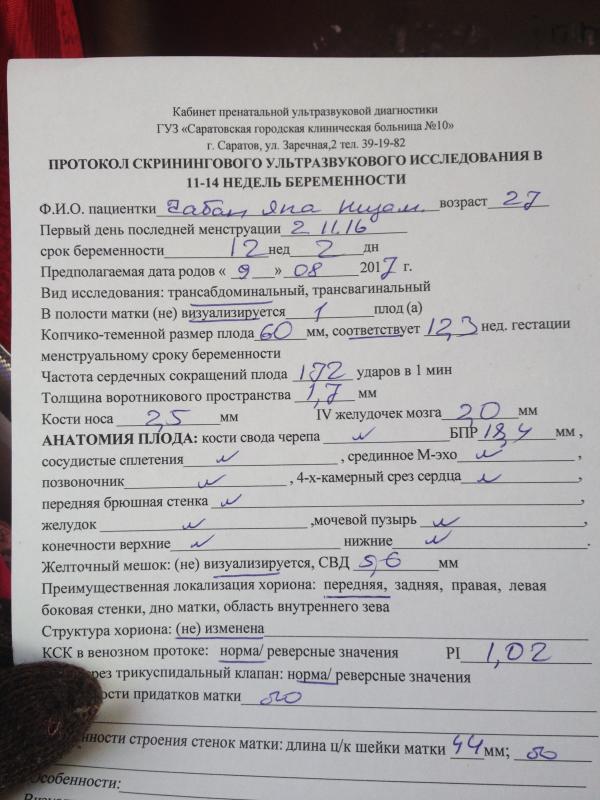 Кабинет пренатальной ультразвуковой диагностики
ГУЗ «Саратовская городская клиническая больница №10»
г. Саратов, ул. Заречная,2 тел. 39-19-82
ПРОТОКОЛ СКРИНИНГОВОГО УЛЬТРАЗВУКОВОГО ИССЛЕДОВАНИЯ В
11-14 НЕДЕЛЬ БЕРЕМЕННОСТИ
Ф.И.О. пациентки Чабан Яна возраст 27
Первый день последней менструации 2 11.16
срок беременности 12 нед 2 дн
Предполагаемая дата родов « 9 » 08 2017 г.
Вид исследования: трансабдоминальный, трансвагинальный
В полости матки (не) визуализируется 1 плод (а)
Копчико-теменной размер плода 60 мм, соответствует 12,3 нед. гестации
менструальному сроку беременности
Частота сердечных сокращений плода 172 ударов в 1 мин
Толщина воротникового пространства 1,7 мм
Кости носа 2,5 мм IV желудочек мозга 2,0 мм
АНАТОМИЯ ПЛОДА: кости свода черепа N БПР 18,4 мм ,
сосудистые сплетения N , срединное М-эхо N ,
позвоночник N , 4-х-камерный срез сердца N ,
передняя брюшная стенка N ,
желудок N ,мочевой пузырь N ,
конечности верхние N нижние N .
Желточный мешок: (не) визуализируется, СВД 5,6 мм
Преимущественная локализация хориона: передняя, задняя, правая, левая
боковая стенки, дно матки, область внутреннего зева
Структура хориона: (не) изменена
КСК в венозном протоке: норма/ реверсные значения PI 1,02
рез трикуспидальный клапан: норма/ реверсные значения
ности придатков матки
нности строения стенок матки: длина ц/к шейки матки 44 мм;
Особенности: